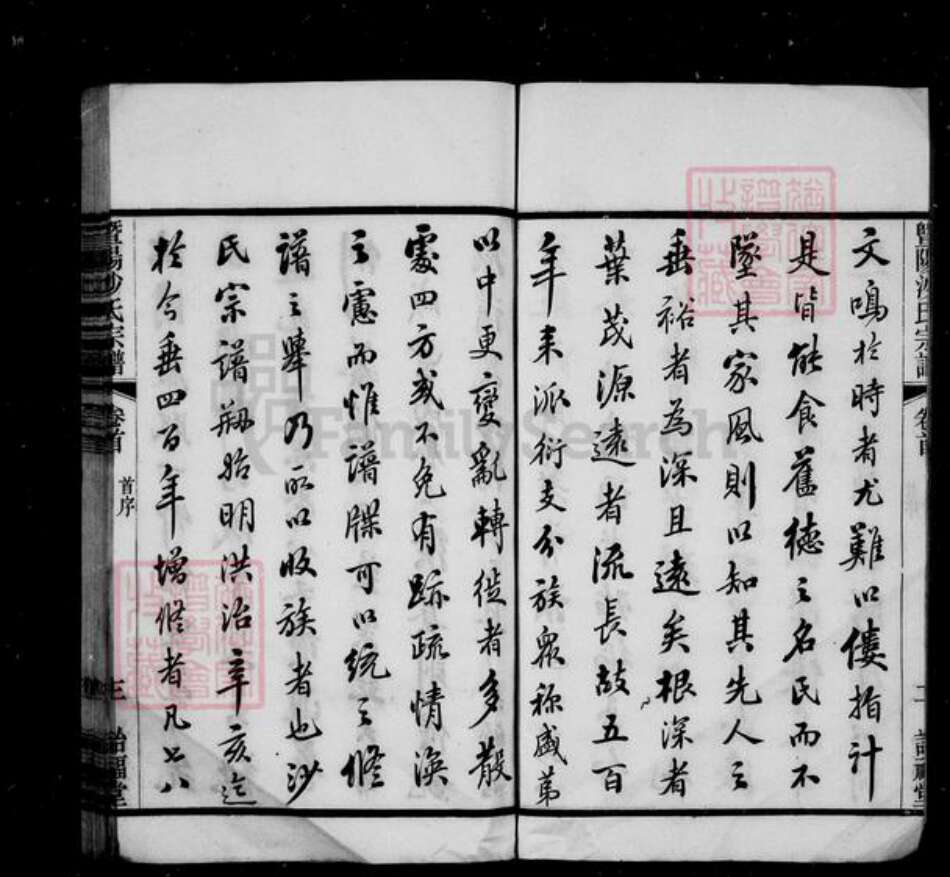 暨陽沙氏宗譜
卷首
二
詒福堂
文鳴於時者尤難以僂指計
是皆能食舊德之名氏而不
墜其家風則以知其先人之
垂裕者為深且遠矣根深者
葉茂源遠者流長故五百
年来派衍支分族衆称盛第
以中更變亂轉徙者多散
處四方或不免有跡疏情渙
之慮而惟譜牒可以統之修
譜之舉乃所以收族者也沙
氏宗譜剏始明洪治辛亥迄
於今垂四百年增修者凡七八
暨陽沙氏宗譜
卷首
首序
三
詒福堂
FamilySearch